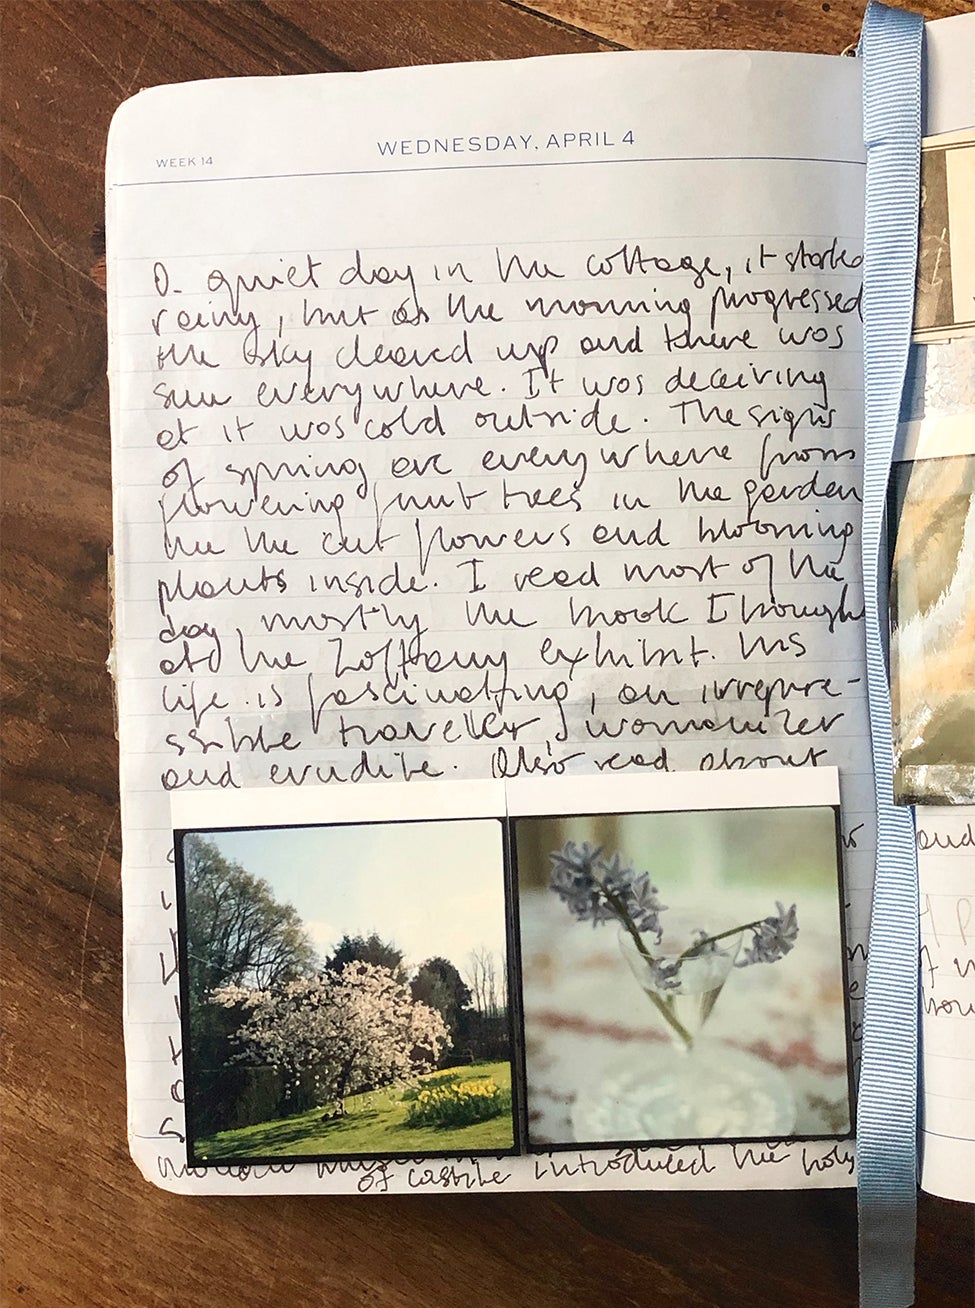 WEEK 14
WEDNESDAY, APRIL 4
A quiet day in the cottage, it started
rainy, but as the morning progressed
the sky cleared up and there was
sun everywhere. It was deceiving
at it was cold outside. The signs
of spring are everywhere from
flowering fruit trees in the garden
the the cut flowers and blooming
plants inside. I read most of the
day, mostly the book I bought
at the Zoffany exhibit. His
life is fascinating, an irrepre-
ssible traveller, womanizer
and erudite. Also read about
of Castile introduced the holy
and